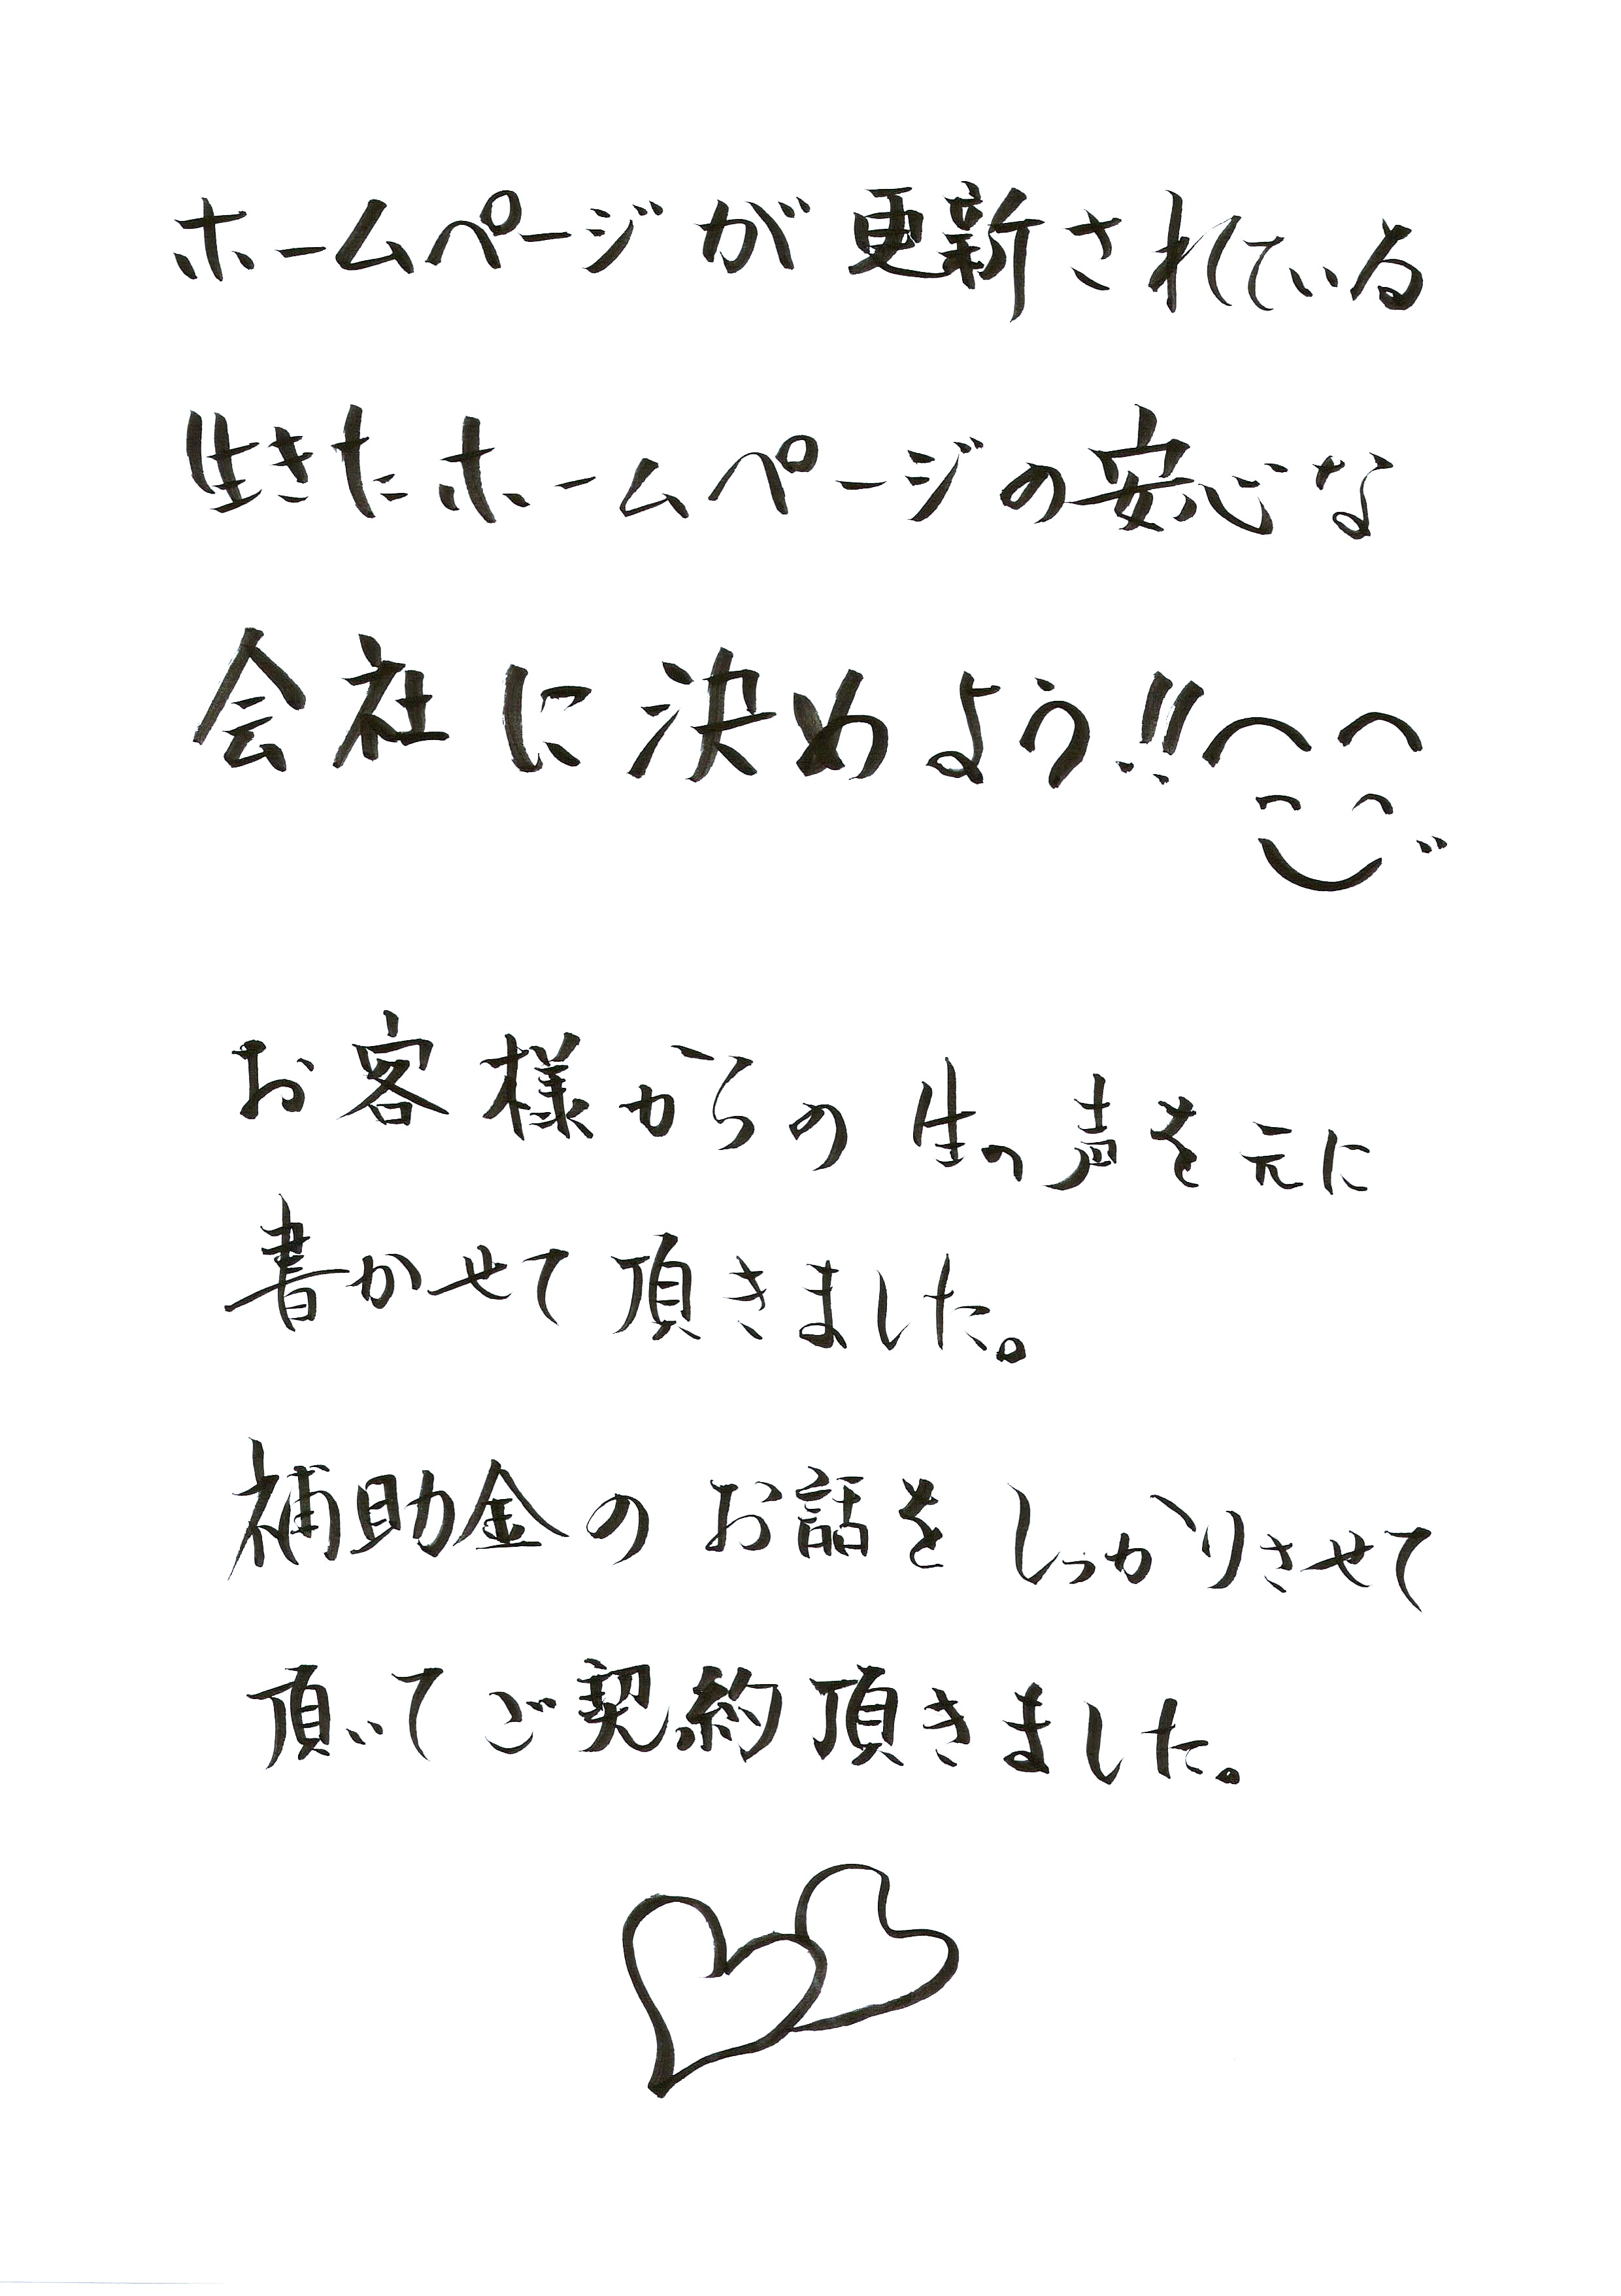 ホームページが更新されている
生きたホームページの安心な
会社に決めよう!!
お客様からの生の声を元に
書かせて頂きました。
補助金のお話をしっかりさせて
頂いてご契約頂きました。